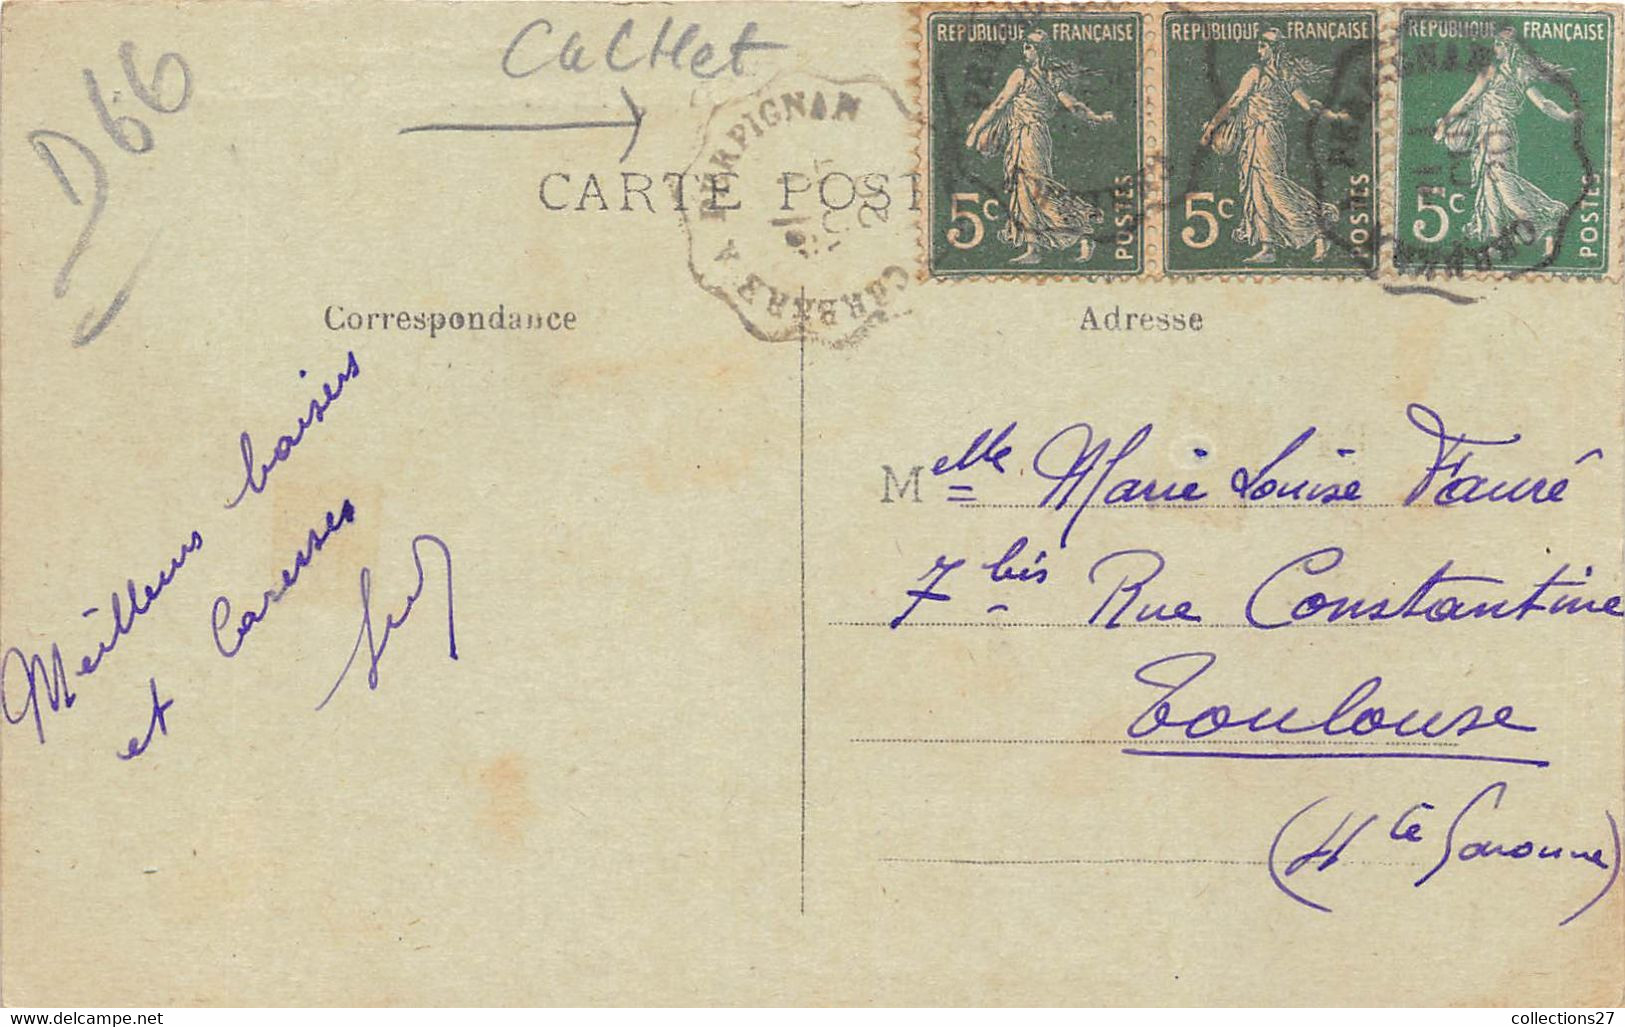 CaChet
D66
CARTE POST
REPUBLIQUE FRANÇAISE
5c
POSTES
REPUBLIQUE FRANÇAISE
5c
POSTES
REPUBLIQUE FRANÇAISE
5c
POSTES
PERPIGNAN
A
CERBERE
PERPIGNAN
Correspondance
Adresse
Meilleurs baisers
et Caresses
Melle Marie Louise Fauré
7 bis Rue Constantine
Toulouse
(Hte Garonne)
www.delcampe.net
collections27